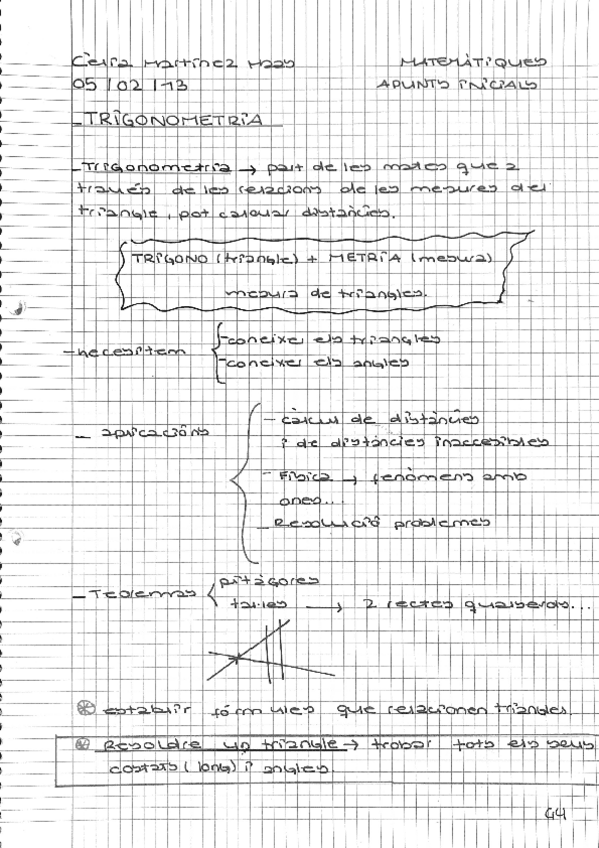 Cèlia Martínez Mass MATEMÀTIQUES
05/02/13 APUNTS INICIALS
- TRIGONOMETRIA
- Trigonometria → part de les mates que a
través de les relacions de les mesures del
triangle, pot calcular distàncies.
TRIGONO (triangle) + METRIA (mesura)
mesura de triangles.
- necesitem
- coneixer els triangles
- coneixer els angles
- aplicacións
- càlcul de distàncies
i de distàncies inaccesibles
- Física → fenòmens amb
ones...
- Resolució problemes
- Teoremas
pitàgores
tales → 2 rectes qualsevols...
establir fórmules que relacionen triangles.
Resoldre un triangle → trobar tots els seus
costats (long) i angles.
G4